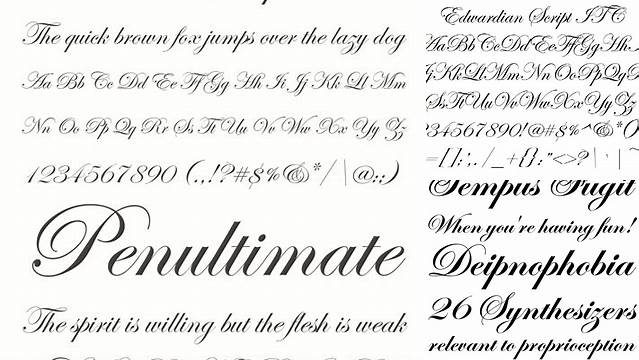 The quick brown fox jumps over the lazy dog
Aa Bb Cc Dd Ee Ff Gg Hh Ii Jj Kk Ll Mm
Nn Oo Pp Qq Rr Ss Tt Uu Vv Ww Xx Yy Zz
1234567890 (.,!?#$%&*/|\@:;)
Penultimate
The spirit is willing but the flesh is weak
Edwardian Script ITC
Aa Bb Cc Dd Ee Ff Gg Hh
Kk Ll Mm Nn Oo Pp Qq
Ss Tt Uu Vv Ww Xx Yy Zz
34567890!@#$%^&*()
=[];',./_+{}:"<>?
Tempus Fugit
When you're having fun!
Deipnophobia
26 Synthesizers
relevant to proprioception